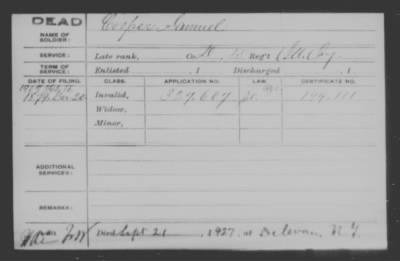 DEAD
NAME OF SOLDIER: Cooper Samuel
SERVICE: Late rank, Co. Reg't Ill. Cav.
TERM OF SERVICE: Enlisted , 1 Discharged , 1
DATE OF FILING. CLASS. APPLICATION NO. LAW. CERTIFICATE NO.
1879 Dec 20 Invalid, 327.607 199.111
Widow,
Minor,
ADDITIONAL SERVICES:
REMARKS:
Died Sept 21 , 1927, at Delevan, N.Y.